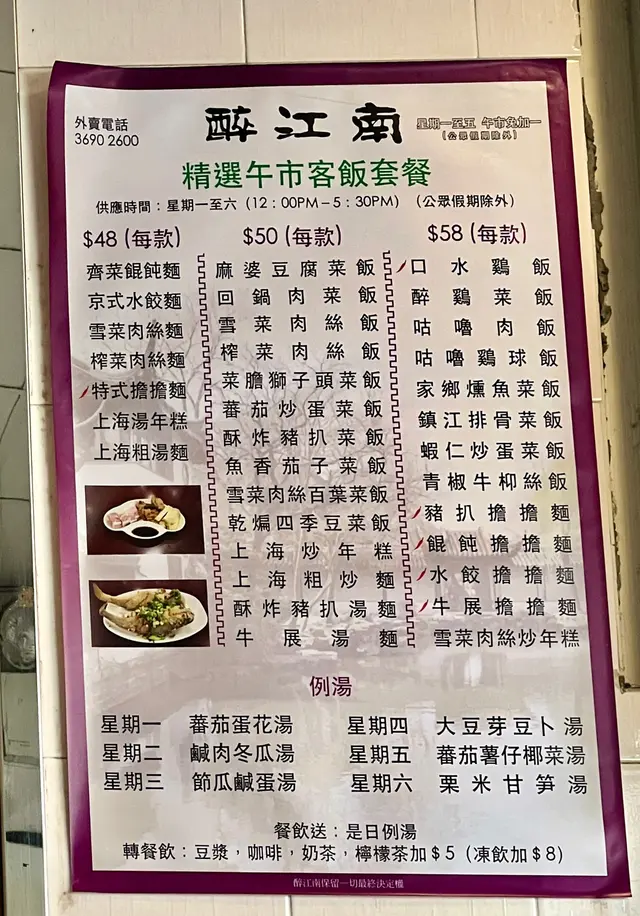 外賣電話
3690 2600
醉江南
星期一至五 午市免加一
(公眾假期除外)
精選午市客飯套餐
供應時間：星期一至六（12：00PM－5：30PM）（公眾假期除外）
$48 (每款)
齊菜餛飩麵
京式水餃麵
雪菜肉絲麵
榨菜肉絲麵
特式擔擔麵
上海湯年糕
上海粗湯麵
$50 (每款)
麻婆豆腐菜飯
回鍋肉菜飯
雪菜肉絲飯
榨菜肉絲飯
菜膽獅子頭菜飯
蕃茄炒蛋菜飯
酥炸豬扒菜飯
魚香茄子菜飯
雪菜肉絲百葉菜飯
乾煸四季豆菜飯
上海炒年糕
上海粗炒麵
酥炸豬扒湯麵
牛展湯麵
$58 (每款)
口水鷄飯
醉鷄菜飯
咕嚕肉飯
咕嚕鷄球飯
家鄉燻魚菜飯
鎮江排骨菜飯
蝦仁炒蛋菜飯
青椒牛柳絲飯
豬扒擔擔麵
餛飩擔擔麵
水餃擔擔麵
牛展擔擔麵
雪菜肉絲炒年糕
例湯
星期一 蕃茄蛋花湯
星期二 鹹肉冬瓜湯
星期三 節瓜鹹蛋湯
星期四 大豆芽豆卜湯
星期五 蕃茄薯仔椰菜湯
星期六 栗米甘笋湯
餐飲送：是日例湯
轉餐飲：豆漿，咖啡，奶茶，檸檬茶加＄5（凍飲加＄8）
醉江南保留一切最終決定權